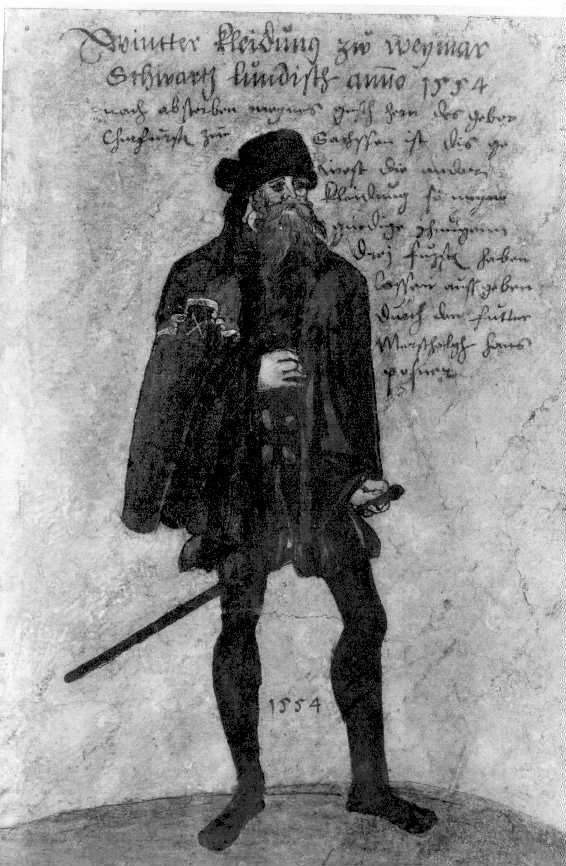 Wintter kleidung zw weymar
Schwartz lundisch anno 1554
nach absterben meynes gnsch hern des gebor
Churfurst zw Sachssen ist dis ge
west die ander
kleidung so meyne
gnedige
drej fursten haben
lassen auss geben
durch den futter
Marschalgh hans
posner
1554